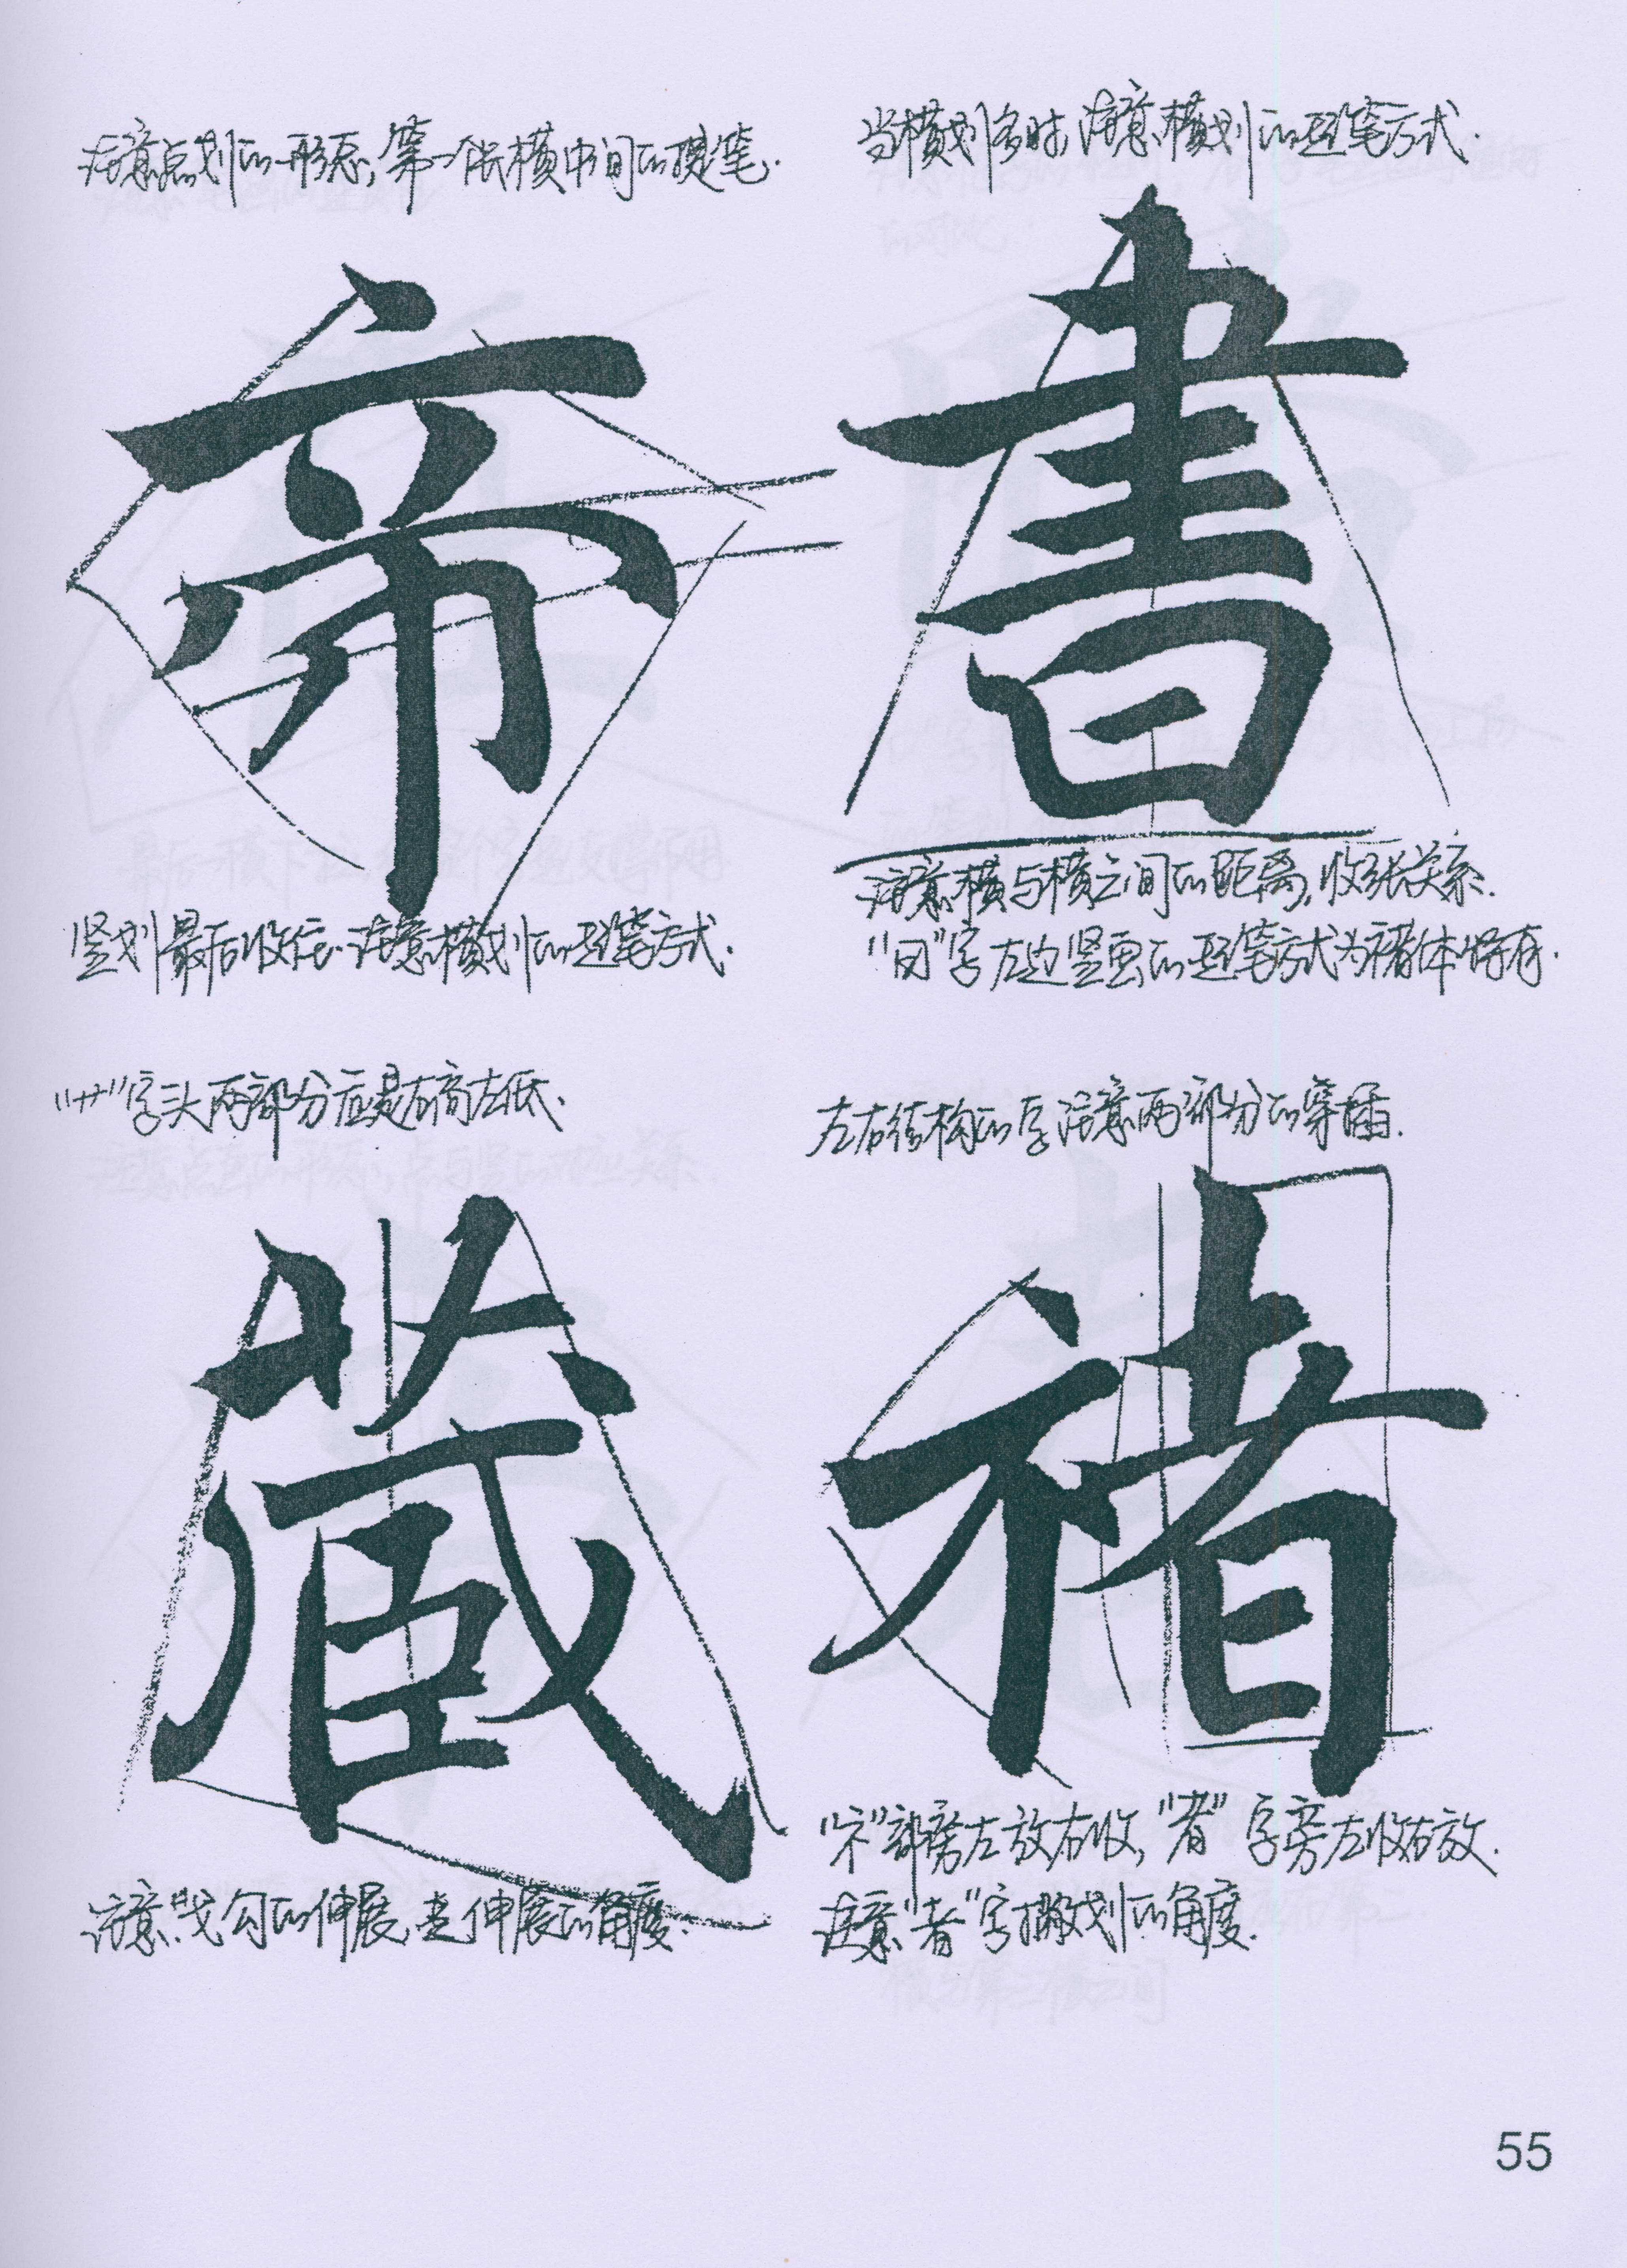 注意点划的形态，第一个长横中间的提笔.
帝
竖划最后收住.注意横划的起笔方式.
当横划多时，注意横划的起笔方式.
書
注意横与横之间的距离，收张关系.
“曰”字左边竖画的起笔方式为褚体特有.
“艹”字头两部分应是右高左低、
蔵
注意戈勾的伸展，是伸展的角度.
左右结构的字注意两部分的穿插.
褚
“礻”部旁左放右收，“者”字旁左收右放.
注意“者”字撇划的角度.
55